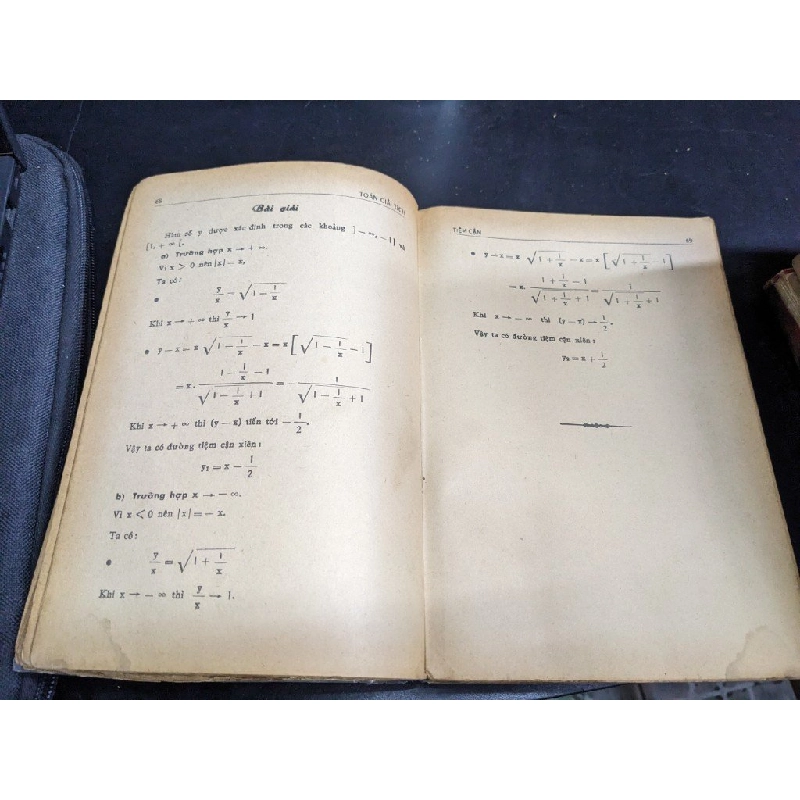 68 TOÁN GIẢI TÍCH
Bài giải
Hàm số y được xác định trong các khoảng ] — ∞, — 1] và
[1, + ∞ [.
a) Trường hợp x → + ∞.
Vì x > 0 nên |x| = x.
Ta có:
• y/x = √(1 — 1/x)
Khi x → + ∞ thì y/x → 1
• y — x = x √(1 — 1/x) — x = x [√(1 — 1/x) — 1]
= x. (1 — 1/x — 1)/(√(1 — 1/x) + 1) = 1/(√(1 — 1/x) + 1)
Khi x → + ∞ thì (y — x) tiến tới — 1/2.
Vậy ta có đường tiệm cận xiên:
y₁ = x — 1/2
b) Trường hợp x → — ∞.
Vì x < 0 nên |x| = — x.
Ta có:
• y/x = √(1 + 1/x)
Khi x → — ∞ thì y/x → 1.
TIỆM CẬN 69
• y — x = x √(1 + 1/x) — x = x [√(1 + 1/x) — 1]
= x. (1 + 1/x — 1)/(√(1 + 1/x) + 1) = 1/(√(1 + 1/x) + 1)
Khi x → — ∞ thì (y — x) → 1/2.
Vậy ta có đường tiệm cận xiên:
y₂ = x + 1/2